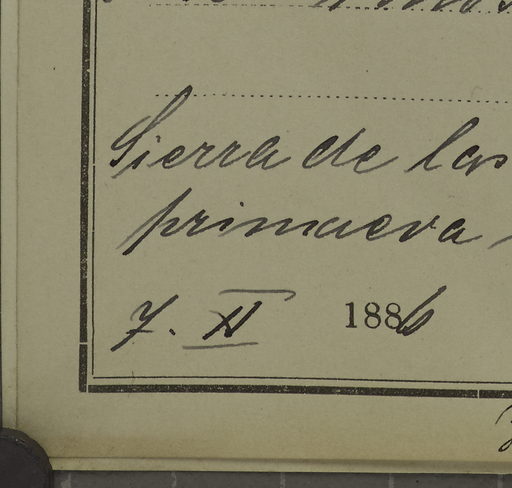 Sierra de las
primaeva
7. XI 1886